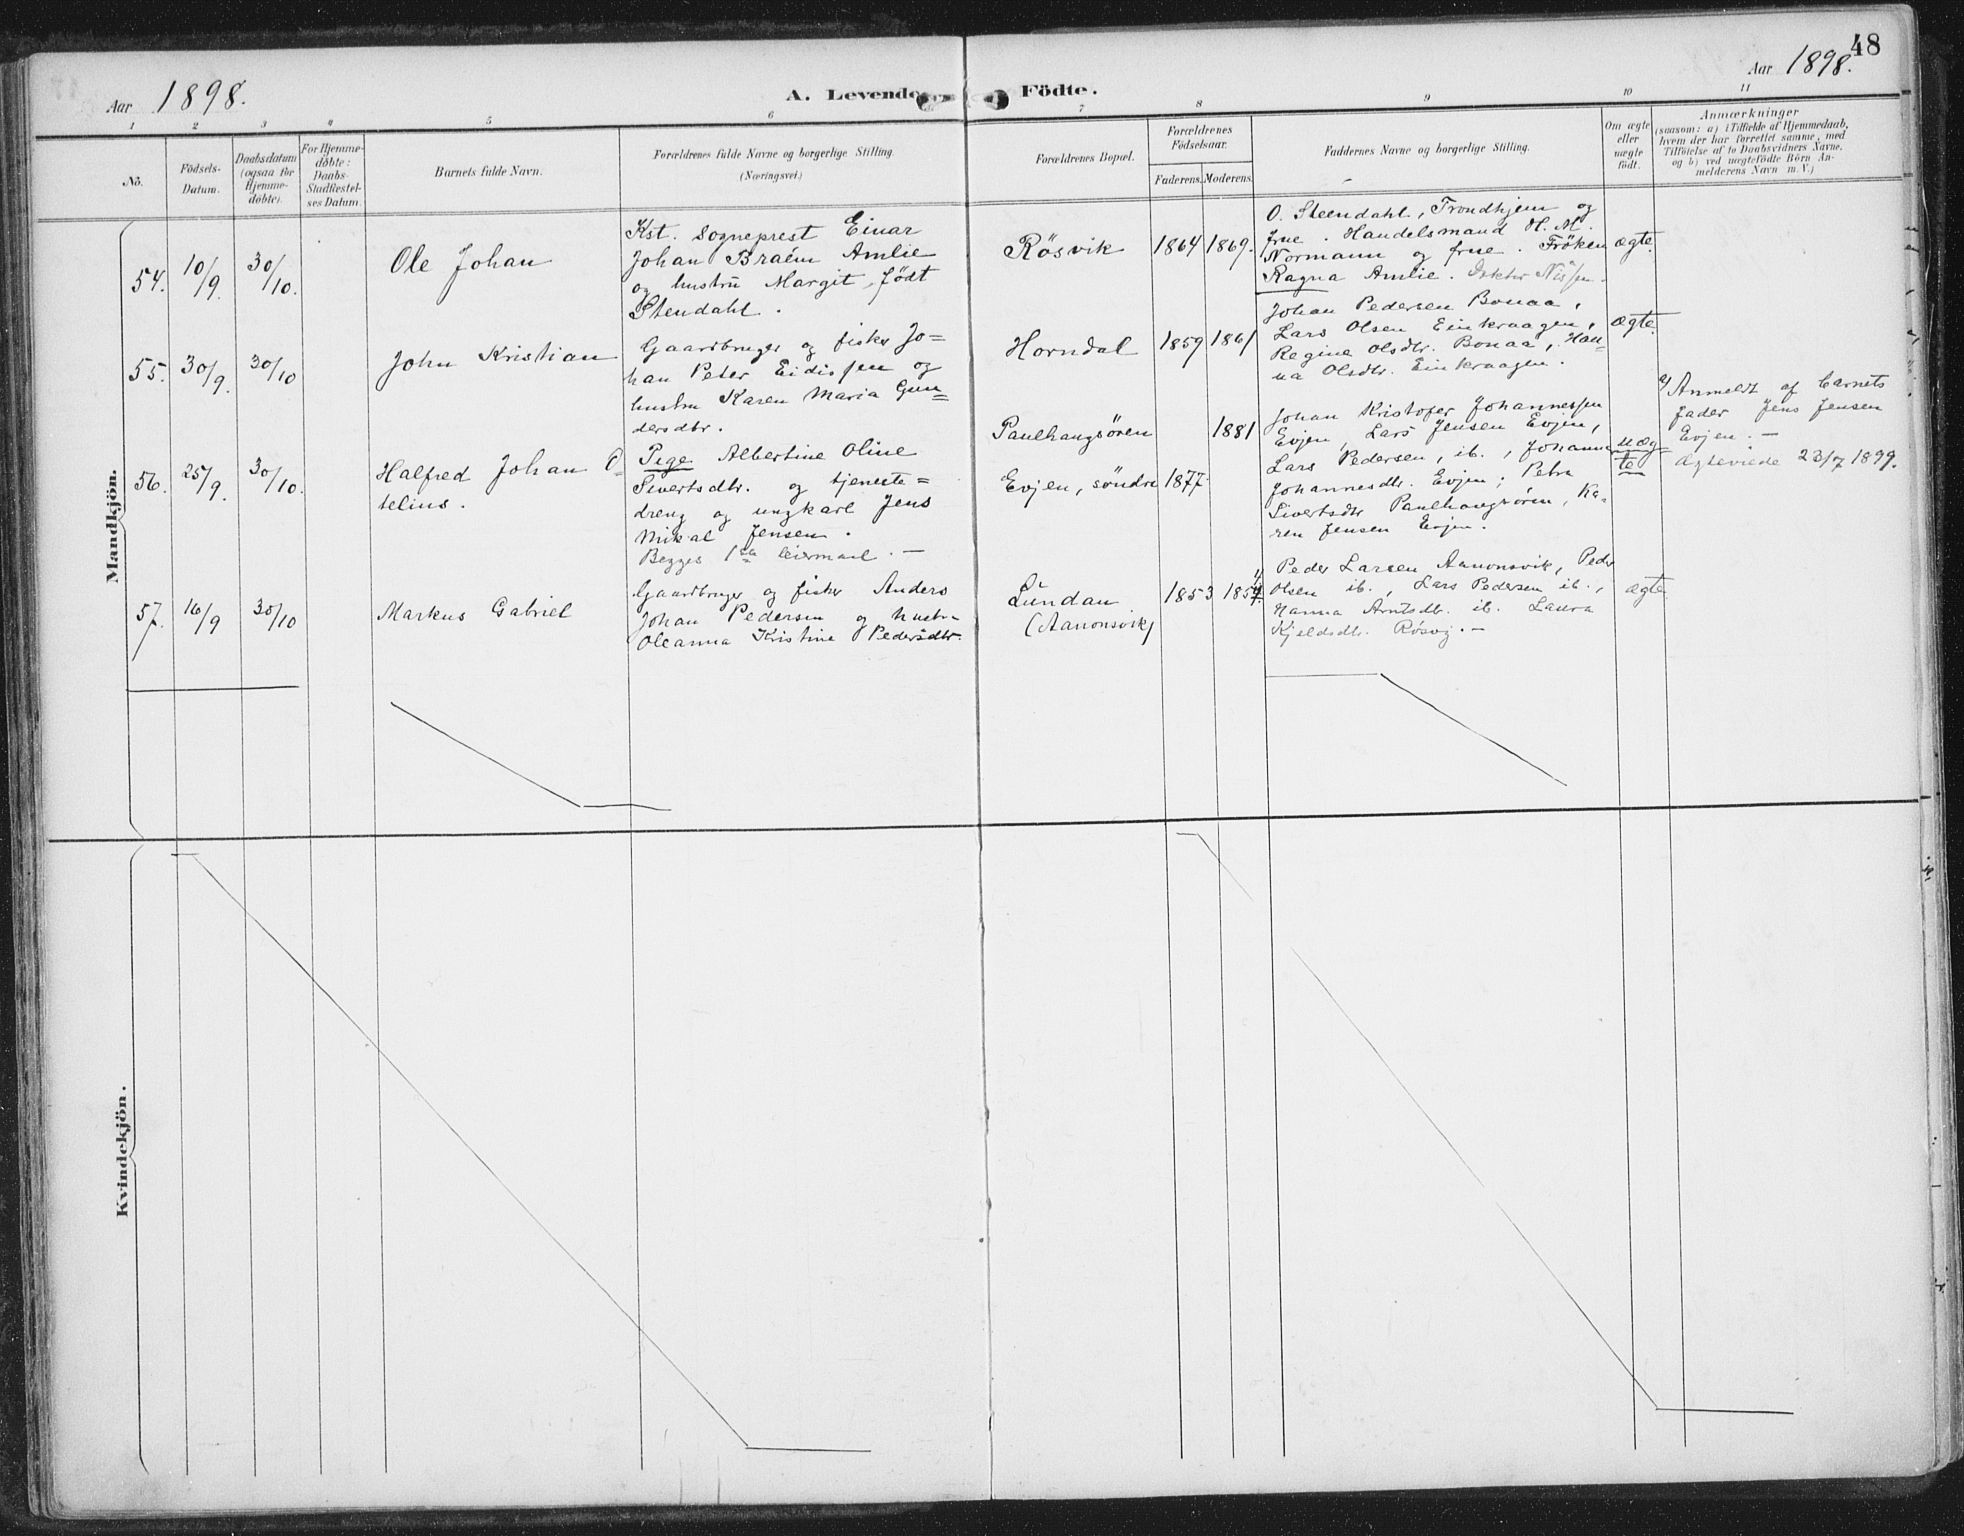 48
Aar 1898.
A. Levende Födte.
Aar 1898.
1 2 3 4 5 6 7 8 9 10 11
No.
Födsels-Datum.
Daabsdatum (ogsaa for Hjemme-döbte).
For Hjemme-döbte: Daabs-Stadfæstel-ses Datum.
Barnets fulde Navn.
Forældrenes fulde Navne og borgerlige Stilling.
(Næringsvei.)
Forældrenes Bopæl.
Forældrenes Födselsaar.
Faderens. Moderens.
Faddernes Navne og borgerlige Stilling.
Om ægte eller uægte födt.
Anmærkninger
(saasom: a) i Tilfælde af Hjemmedaab,
hvem der har forrettet samme, med
Tilföielse af to Daabsvidners Navne,
og b) ved uegtefödte Börn An-
melderens Navn m. V.)
Mandkjön.
54. 10/9. 30/10. Ole Johan
Kst. Sogneprest Einar
Johan Braëm Amlie
og hustru Margit, født
Stendahl.
Røsvik 1864 1869.
O. Steendahl, Trondhjem og
frue. Handelsmand H. M.
Normann og frue. Frøken
Ragna Amlie.
ægte
55. 30/9. 30/10 John Kristian
Gaardbruger og fisker Jo=
han Peter Eidissen og
hustru Karen Maria Gun=
dersdtr.
Horndal 1859 1861
Johan Pedersen Bonaa,
Lars Olsen Einkraagen,
Regine Olsdtr. Bonaa, Han=
na Olsdtr. Einkraagen.
ægte
56. 25/9. 30/10. Halfred Johan O=
telius.
Pige Albertine Oline
Sivertsdtr. og tjeneste=
dreng og ungkarl Jens
Mikal Jensen.
Begges 1ste leiermaal. —
Paulhaugsören 1881
Evjen, søndre 1877
Johan Kristofer Johannessen
Evjen, Lars Jensen Evjen,
Lars Pedersen, ib., Johanna
Johannesdtr. Evjen; Petra
Sivertsdtr Paulhaugsören, Ka-
ren Jensen Evjen.
uæg
te
a/ Anmeldt af barnets
fader Jens Jensen
Evjen. —
Ægteviede 23/7 1899.
57. 16/9 30/10 Markus Gabriel
Gaardbruger og fisker Anders
Johan Pedersen og hustru
Oleanna Kristine Pedersdtr.
Lundan
(Aanonsvik)
1853 1854
Peder Larsen Aanonsvik, Peder
Olsen ib., Lars Pedersen ib.,
Hanna Arntsdtr. ib. Laura
Kjeldsdtr. Røsvig. —
ægte
Kvindekjön.